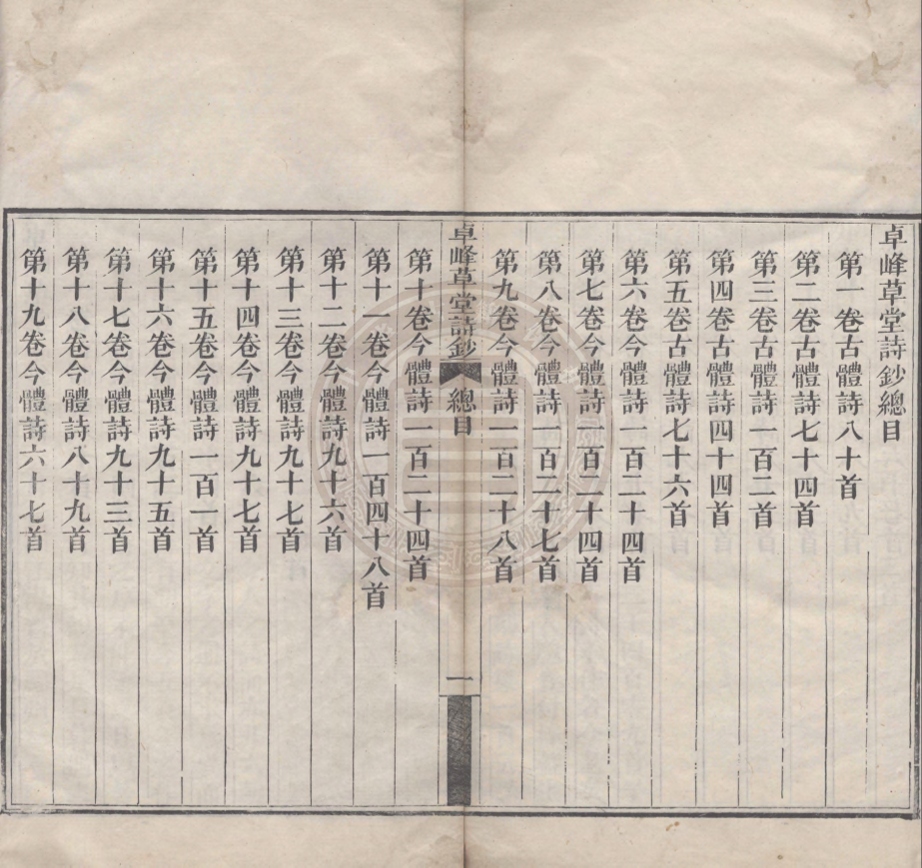 卓峰草堂詩鈔總目
第一卷古體詩八十首
第二卷古體詩七十四首
第三卷古體詩一百二首
第四卷古體詩四十四首
第五卷古體詩七十六首
第六卷今體詩一百二十四首
第七卷今體詩一百二十四首
第八卷今體詩一百二十七首
第九卷今體詩一百二十八首
卓峰草堂詩鈔 總目 一
第十卷今體詩一百二十四首
第十一卷今體詩一百四十八首
第十二卷今體詩九十六首
第十三卷今體詩九十七首
第十四卷今體詩九十七首
第十五卷今體詩一百一首
第十六卷今體詩九十五首
第十七卷今體詩九十三首
第十八卷今體詩八十九首
第十九卷今體詩六十七首